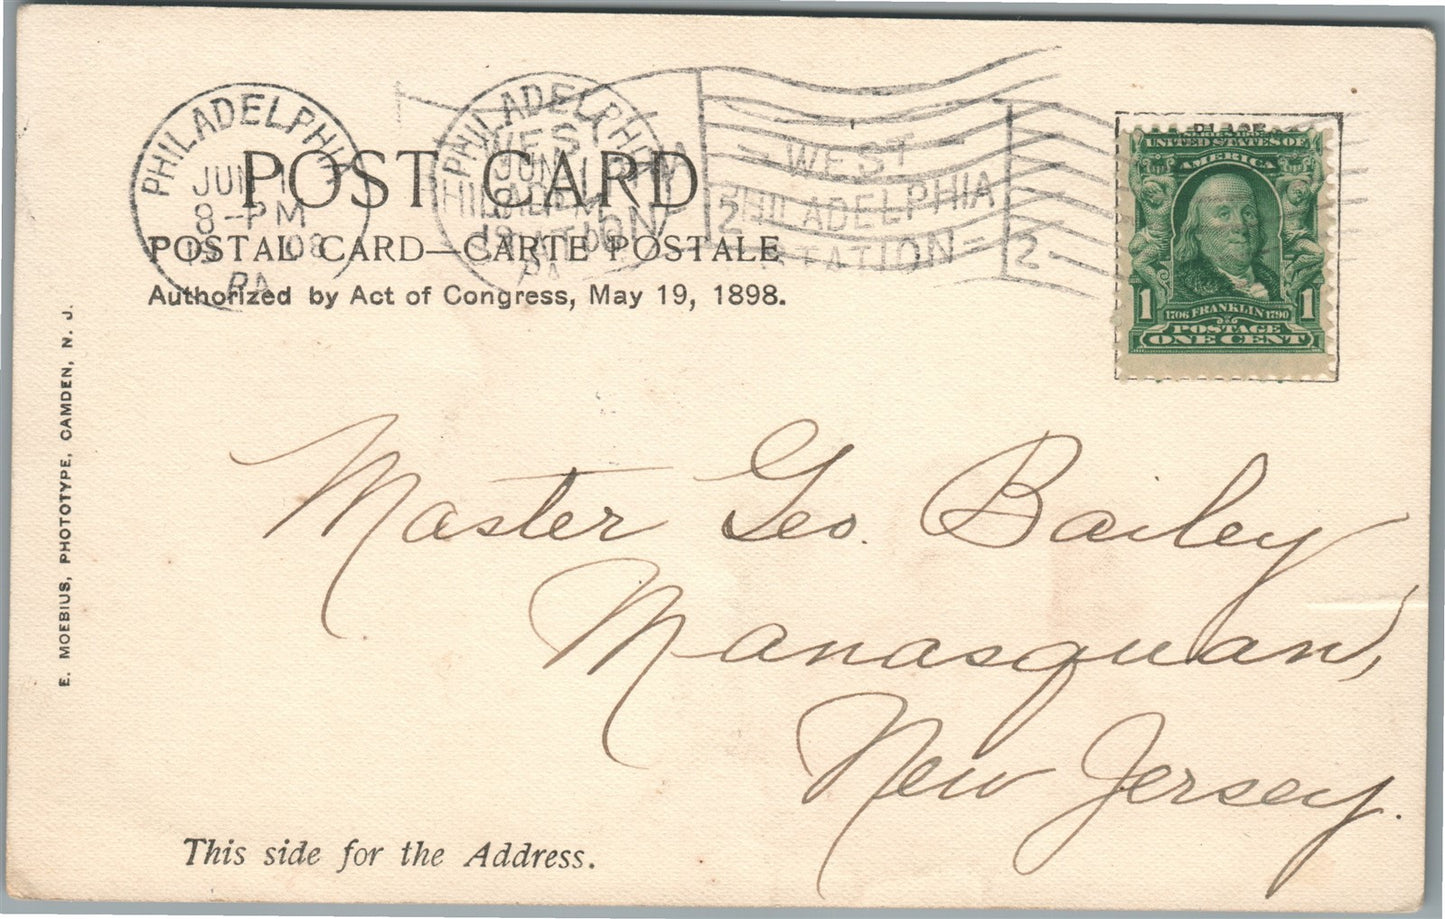 PHILADELPHIA
JUN 1
8-PM
08
PA
PHILADELPHIA
JUN 1
PA
WEST
PHILADELPHIA
STATION
2
WEST
PHILADELPHIA
STATION
2
POST CARD
POSTAL CARD—CARTE POSTALE
Authorized by Act of Congress, May 19, 1898.
UNITED STATES OF
AMERICA
1 1
1706 FRANKLIN 1790
POSTAGE
ONE CENT
E. MOEBIUS, PHOTOTYPE, CAMDEN, N. J.
Master Geo. Bailey
Manasquan,
New Jersey.
This side for the Address.